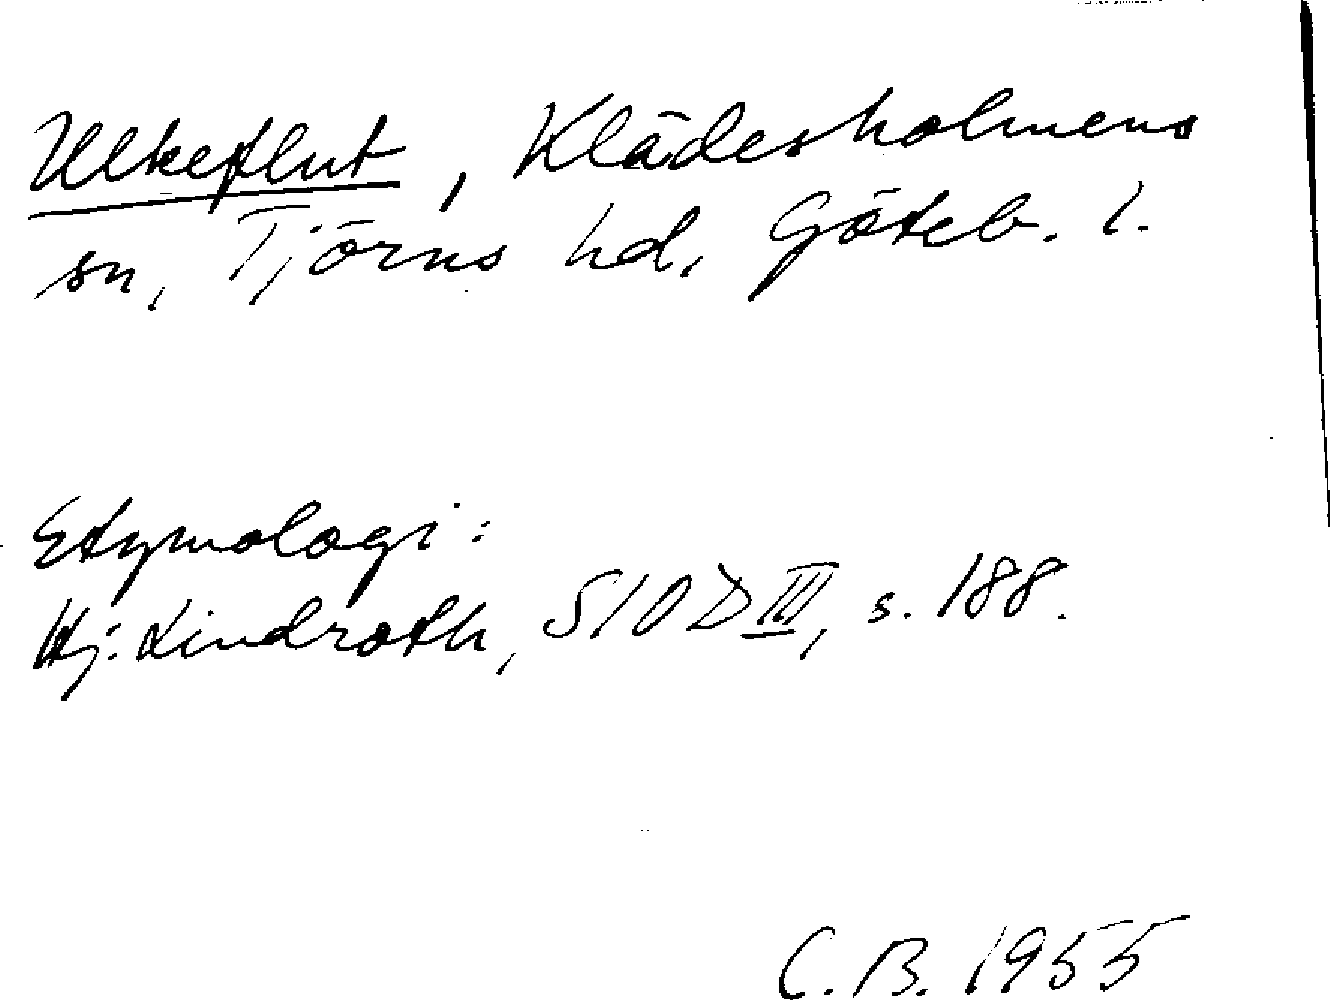 Ulkeflut, Klädesholmens
sn, Tjörns hd, Göteb. l.
Etymologi:
Hj. Lindroth, SIOD III, s. 188.
C. B. 1955